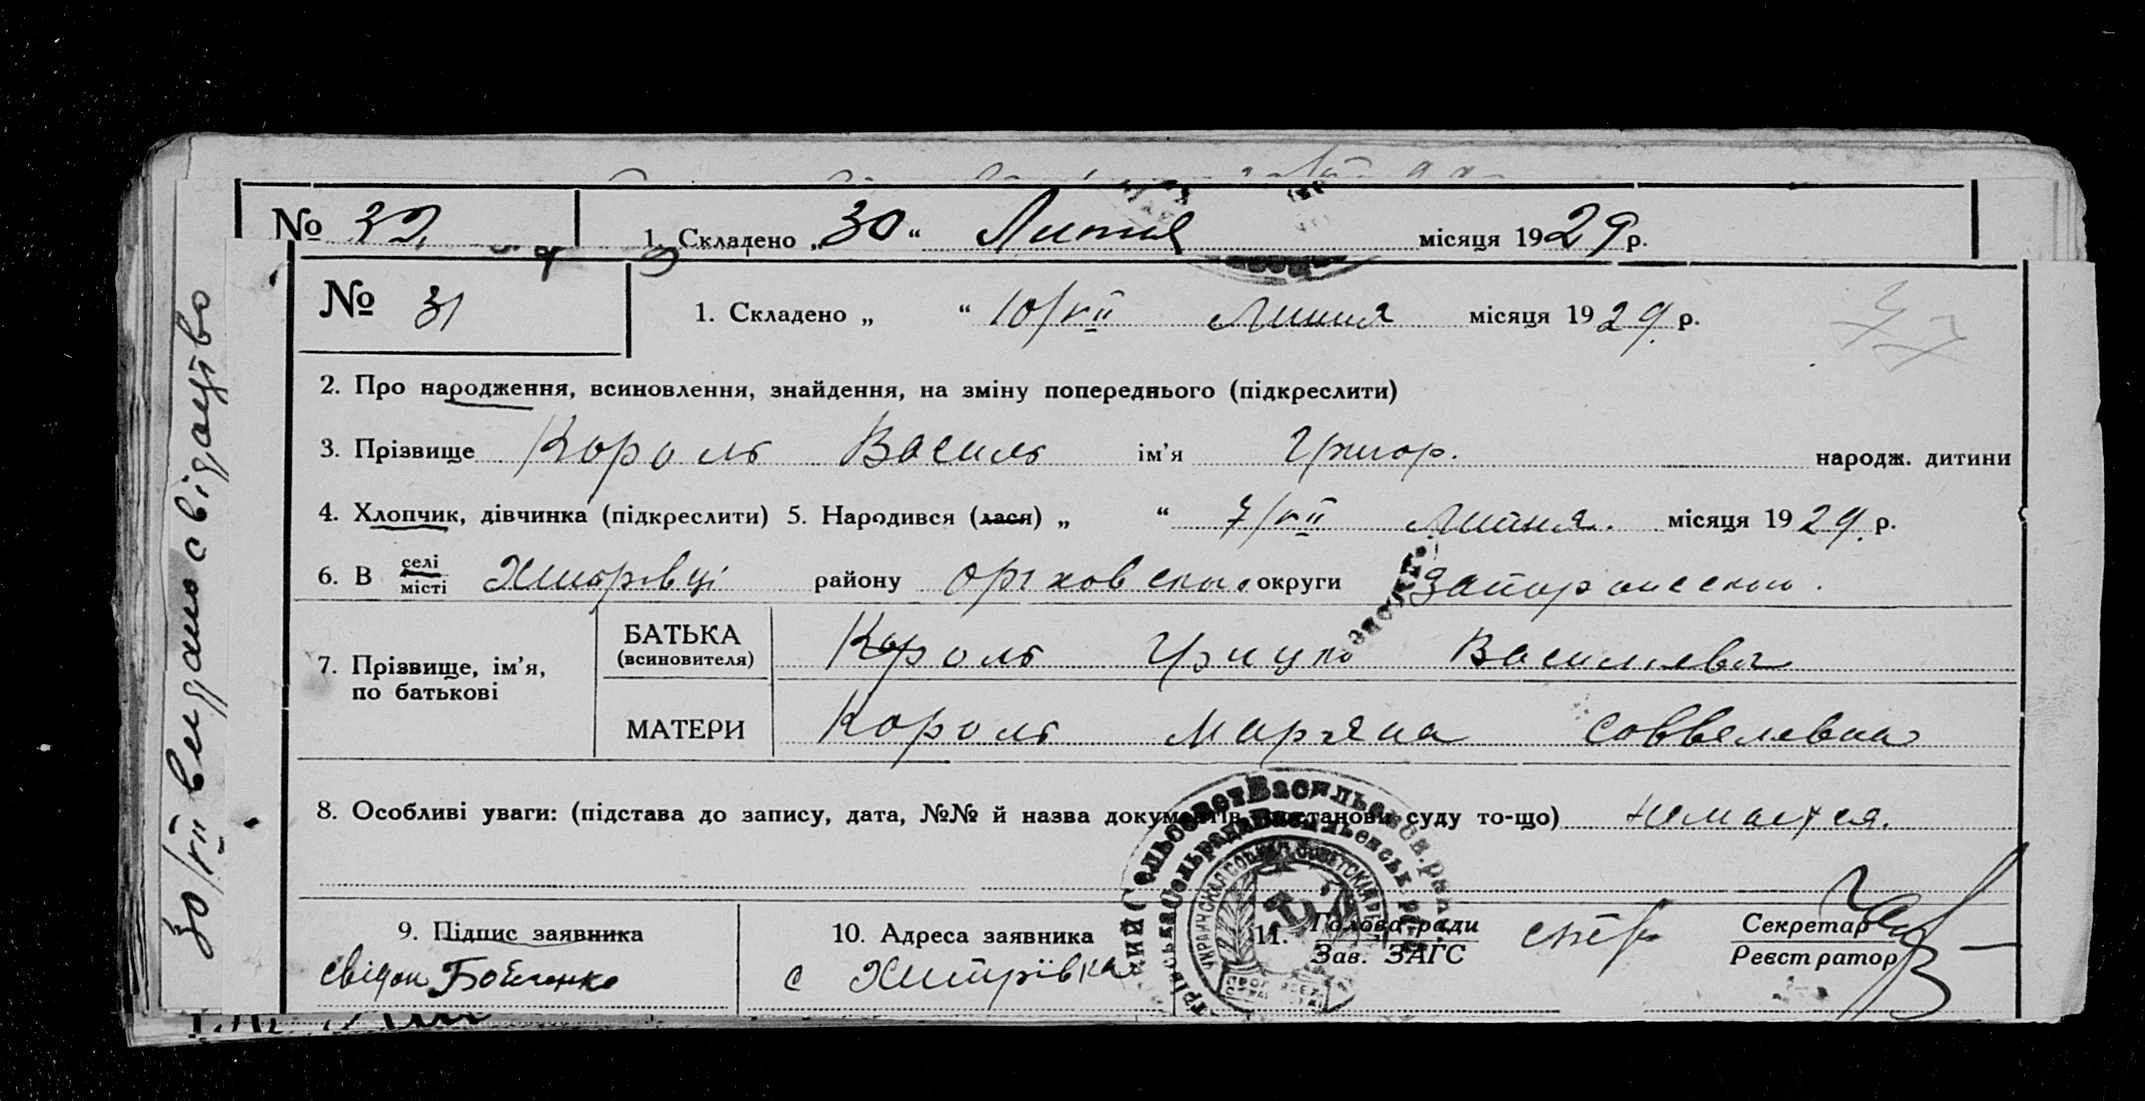 № 32 1. Складено „ 30 “ Липня місяця 1929 р.
№ 31 1. Складено „ “ 10/VII Липня місяця 1929 р.
2. Про народження, всиновлення, знайдення, на зміну попереднього (підкреслити)
3. Прізвище Король Василь ім’я Григор. народж. дитини
4. Хлопчик, дівчинка (підкреслити) 5. Народився (лася) „ “ 7/VII Липня. місяця 1929 р.
6. В селі Хитрівці району Оріховського округи Запорожского.
місті
7. Прізвище, ім’я,
по батькові
БАТЬКА
(всиновителя)
Король Грицко Васильевич
МАТЕРИ Король Марʼяна Соввелевна
8. Особливі уваги: (підстава до запису, дата, №№ й назва документів, постанови суду то-що) немається.
9. Підпис заявника
свідок Бойченко
10. Адреса заявника
с Хитрівка
11. Голова ради
Зав. ЗАГС
Секретар
Реєстратор
30/VII видано свідоцтво